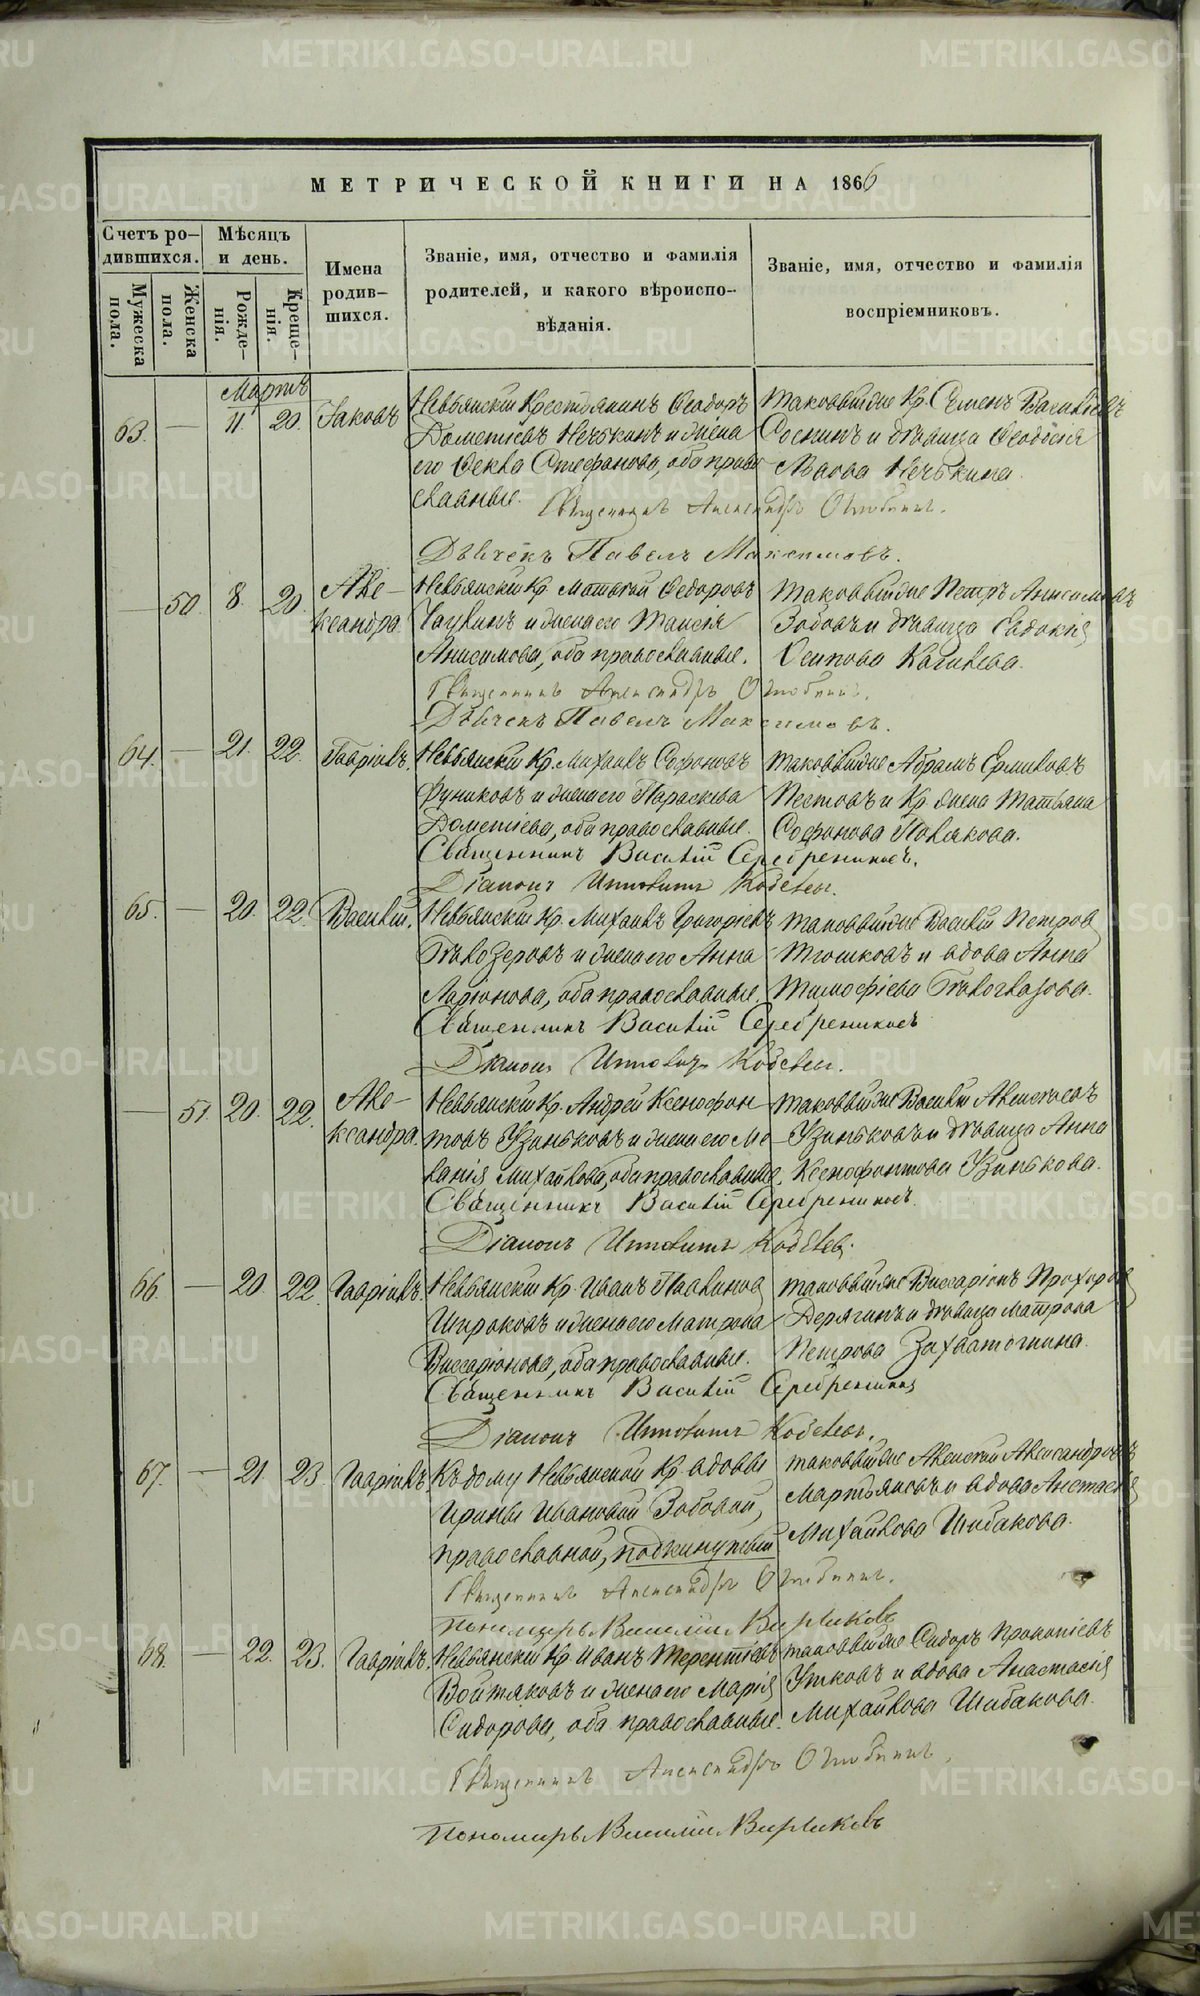 МЕТРИЧЕСКОЙ КНИГИ НА 1866
Счетъ ро-
дившихся.
Мужеска пола.
Женска пола.
Мѣсяцъ
и день.
Рожде-
нія.
Креще-
нія.
Имена
родив-
шихся.
Званіе, имя, отчество и фамилія
родителей, и какого вѣроиспо-
вѣданія.
Званіе, имя, отчество и фамилія
воспріемниковъ.
Мартъ
63. — 11 20. Іаковъ
Невьянскій Крестьянинъ Ѳеодоръ
Дометіевъ Нечкинъ и жена
его Ѳекла Стефанова, оба право
славные.
таковыйже Кр. Семенъ Васильевъ
Соснинъ и дѣвица Ѳеодосія
Львова Нечкина.
Священникъ Александръ
Дьячекъ Павелъ Максимовъ.
— 50. 8. 20. Але-
ксандра.
Невьянскій Кр. Матвѣй Ѳедоровъ
и жена его Таисія
Анисимова, оба православные.
таковыйже Петръ Анисимовъ
Зобовъ и дѣвица Евдокія
Осипова
Священникъ Александръ
Дьячекъ Павелъ Максимовъ.
64. — 21. 22. Гавріилъ.
Невьянскій Кр. Михаилъ Софоновъ
Фуниковъ и жена его Параскева
Дометіева, оба православные.
таковыйже Абрамъ Ермиловъ
Пестовъ и Кр. жена Татьяна
Софонова Полякова.
Священникъ Василій Серебрениковъ.
Діаконъ Ипполитъ
65. — 20. 22. Василій.
Невьянскій Кр. Михаилъ Григорьевъ
Бѣлозеровъ и жена его Анна
Ларіонова, оба православные.
таковыйже Василій Петровъ
и вдова Анна
Тимофіева Бѣлоглазова.
Священникъ Василій Серебрениковъ
Діаконъ Ипполитъ
— 51. 20. 22. Але-
ксандра.
Невьянскій Кр. Андрей Ксенофон-
товъ Узиньковъ и жена его Ме-
ланія Михайлова, оба православные.
таковыйже Василій Алексѣевъ
Узиньковъ и дѣвица Анна
Ксенофонтова Узинькова.
Священникъ Василій Серебрениковъ.
Діаконъ Ипполитъ
66. — 20. 22. Гавріилъ.
Невьянскій Кр. Иванъ Павлиновъ
Широковъ и жена его Матрона
Виссаріонова, оба православные.
таковыйже Виссаріонъ Прохоровъ
Дерягинъ и дѣвица Матрона
Петрова Захватошина.
Священникъ Василій Серебрениковъ
Діаконъ Ипполитъ
67. — 21. 23. Гавріилъ
Къ дому Невьянской Кр. вдовы
Ирины Ивановой Зобовой,
православной, подкинутый
таковыйже Алексѣй Александровъ
Мартьяновъ и вдова Анастасія
Михайлова Шибакова.
Священникъ Александръ
Пономарь Василій
68. — 22. 23. Гавріилъ.
Невьянскій Кр. Иванъ Терентіевъ
Войтяковъ и жена его Марія
Сидорова, оба православные.
таковыйже Сидоръ Прокопіевъ
Утковъ и вдова Анастасія
Михайлова Шибакова.
Священникъ Александръ
Пономарь Василій
METRIKI.GASO-URAL.RU